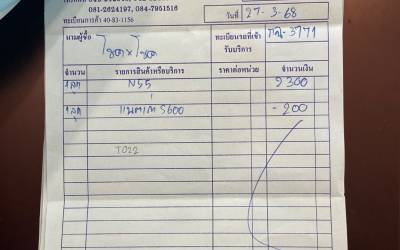 081-2624197, 084-7951516
ทะเบียนการค้า 40-83-1156
วันที่ 27-3-68
นามผู้ซื้อ โชคxโชค
ทะเบียนรถที่เข้ารับบริการ 3771
จำนวน รายการสินค้าหรือบริการ ราคาต่อหน่วย จำนวนเงิน
1 ลูก N55 2300
1 ลูก S600 -200
T022